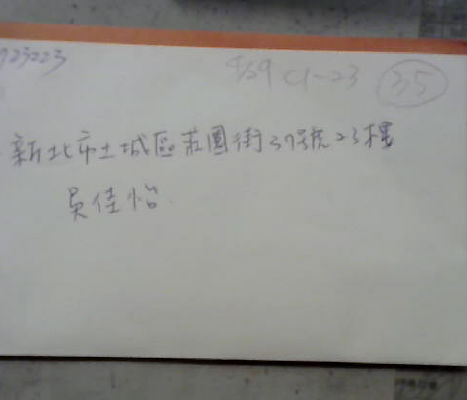 923223
4/29 C1-23 35
新北市土城區莊園街39號23樓
吳佳怡